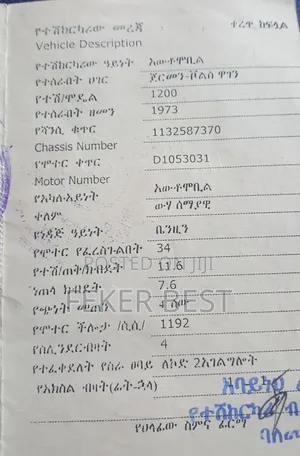 የተሽከርካሪው መረጃ
ቀረጥ ከፍሏል
Vehicle Description
የተሽከርካሪው ዓይነት አውቶሞቢል
የተሰራበት ሀገር ጀርመን-ቮልስ ዋገን
የተሽ/ሞዴል 1200
የተሰራበት ዘመን 1973
የሻንሲ ቁጥር 1132587370
Chassis Number
የሞተር ቀጥር D1053031
Motor Number
የአካሉ አይነት አውቶሞቢል
ቀለም ውሃ ሰማያዊ
የነዳጅ ዓይነት ቤንዚን
የሞተር የፈረስጉልበት 34
POSTED ON JIJI
የተሽ/ጠቅ/ክብደት 11.6
ነጠላ ክብደት 7.6
FEKER BEST
የጭነት መጠን 4 ሰው
የሞተር ችሎታ /ሲሲ/ 1192
የሲሊንደርብዛት 4
የተፈቀደለት የስራ ፀባይ ለኮድ 2አገልግሎት
የአክስል ብዛት(ፊት-ኋላ)
የተሽከርካሪ
የሀላፊው ስምና ፊርማ